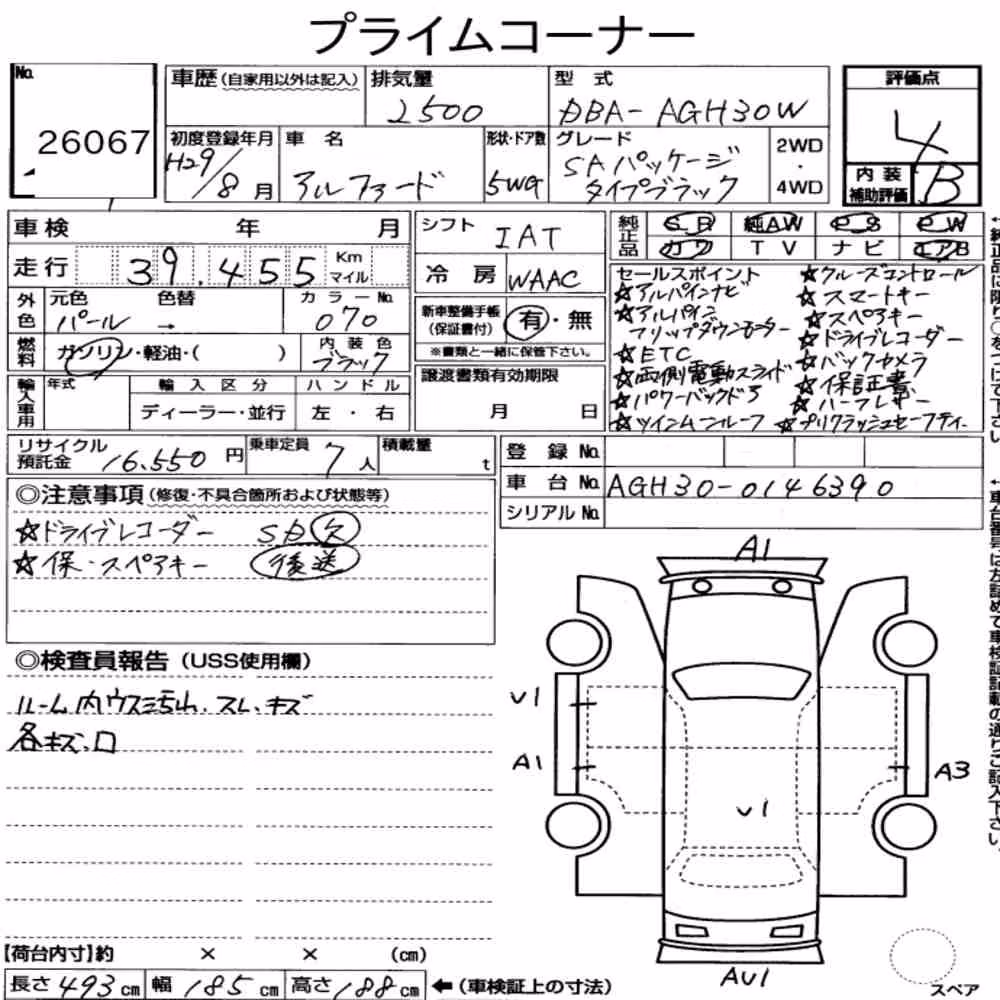 プライムコーナー
No. 26067
車歴(自家用以外は記入)
排気量 2500
型式 DBA-AGH30W
評価点 4
内装補助評価 B
初度登録年月 H29/8月
車名 アルファード
形状・ドア数 5WG
グレード SAパッケージ
タイプブラック
2WD・4WD
車検 年 月
走行 39.455 Km マイル
シフト IAT
冷房 WAAC
純正品 SR 純AW PS PW
カワ TV ナビ エアB
外色 元色 パール 色替 → カラーNo. 070
燃料 ガソリン・軽油・( )
内装色 ブラック
新車整備手帳(保証書付) 有・無
※書類と一緒に保管下さい。
輸入車用 年式 輸入区分 ハンドル
ディーラー・並行 左・右
譲渡書類有効期限
月 日
セールスポイント
☆アルパインナビ
☆アルパイン
フリップダウンモーター
☆ETC
☆両側電動スライド
☆パワーバックドア
☆ツインムーンルーフ
☆クルーズコントロール
☆スマートキー
☆スペアキー
☆ドライブレコーダー
☆バックカメラ
☆保証書
☆ハーフレザー
☆プリクラッシュセーフティ
リサイクル預託金 16.550円
乗車定員 7人
積載量 t
登録No.
車台No. AGH30-0146390
シリアルNo.
◎注意事項(修復・不具合箇所および状態等)
☆ドライブレコーダー SD欠
☆保・スペアキー 後送
◎検査員報告(USS使用欄)
ルーム内ウス汚れ.スレ.キズ
各キズ.ロ
A1
U1
A1
A3
U1
AU1
【荷台内寸】約 × × (cm)
長さ493cm 幅185cm 高さ188cm ←(車検証上の寸法)
スペア
←純正品に限り○をつけて下さい
←車台番号は左詰めで車検証記載の通りご記入下さい。